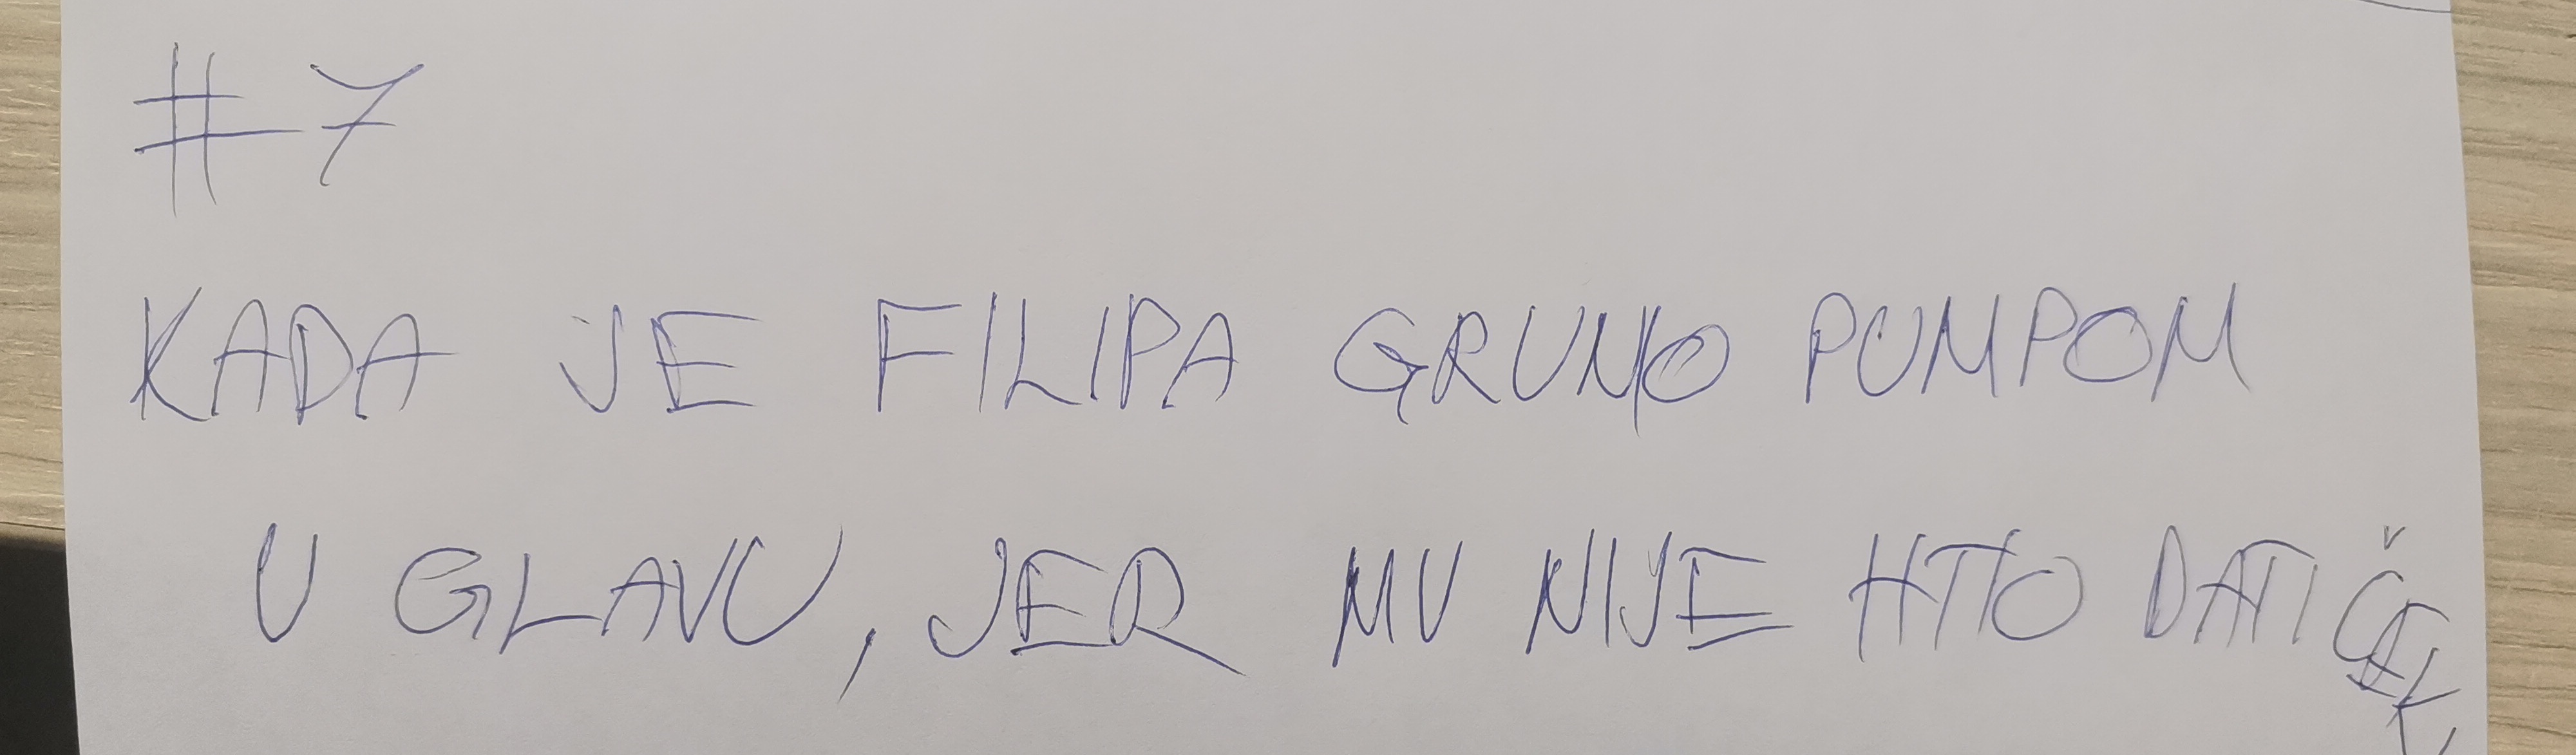 #7
KADA JE FILIPA GRUNIO PUMPOM
U GLAVU, JER MU NIJE HTIO DATI ČEK